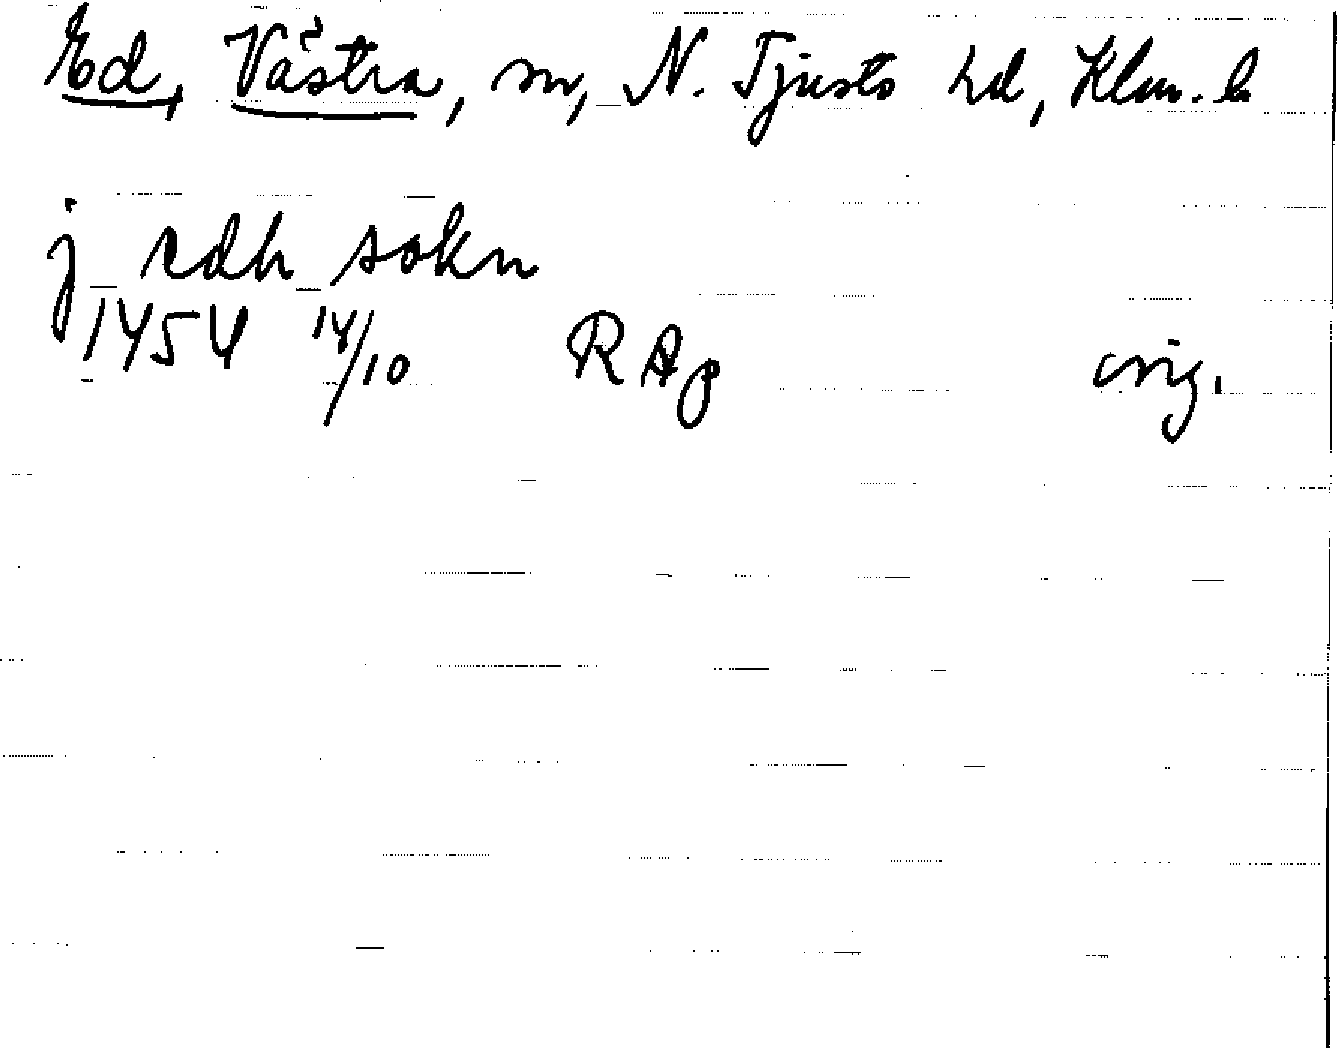 Ed, Västra, sn, N. Tjusts hd, Klm. l.
j edh sokn
1454 14/10 RAp orig.